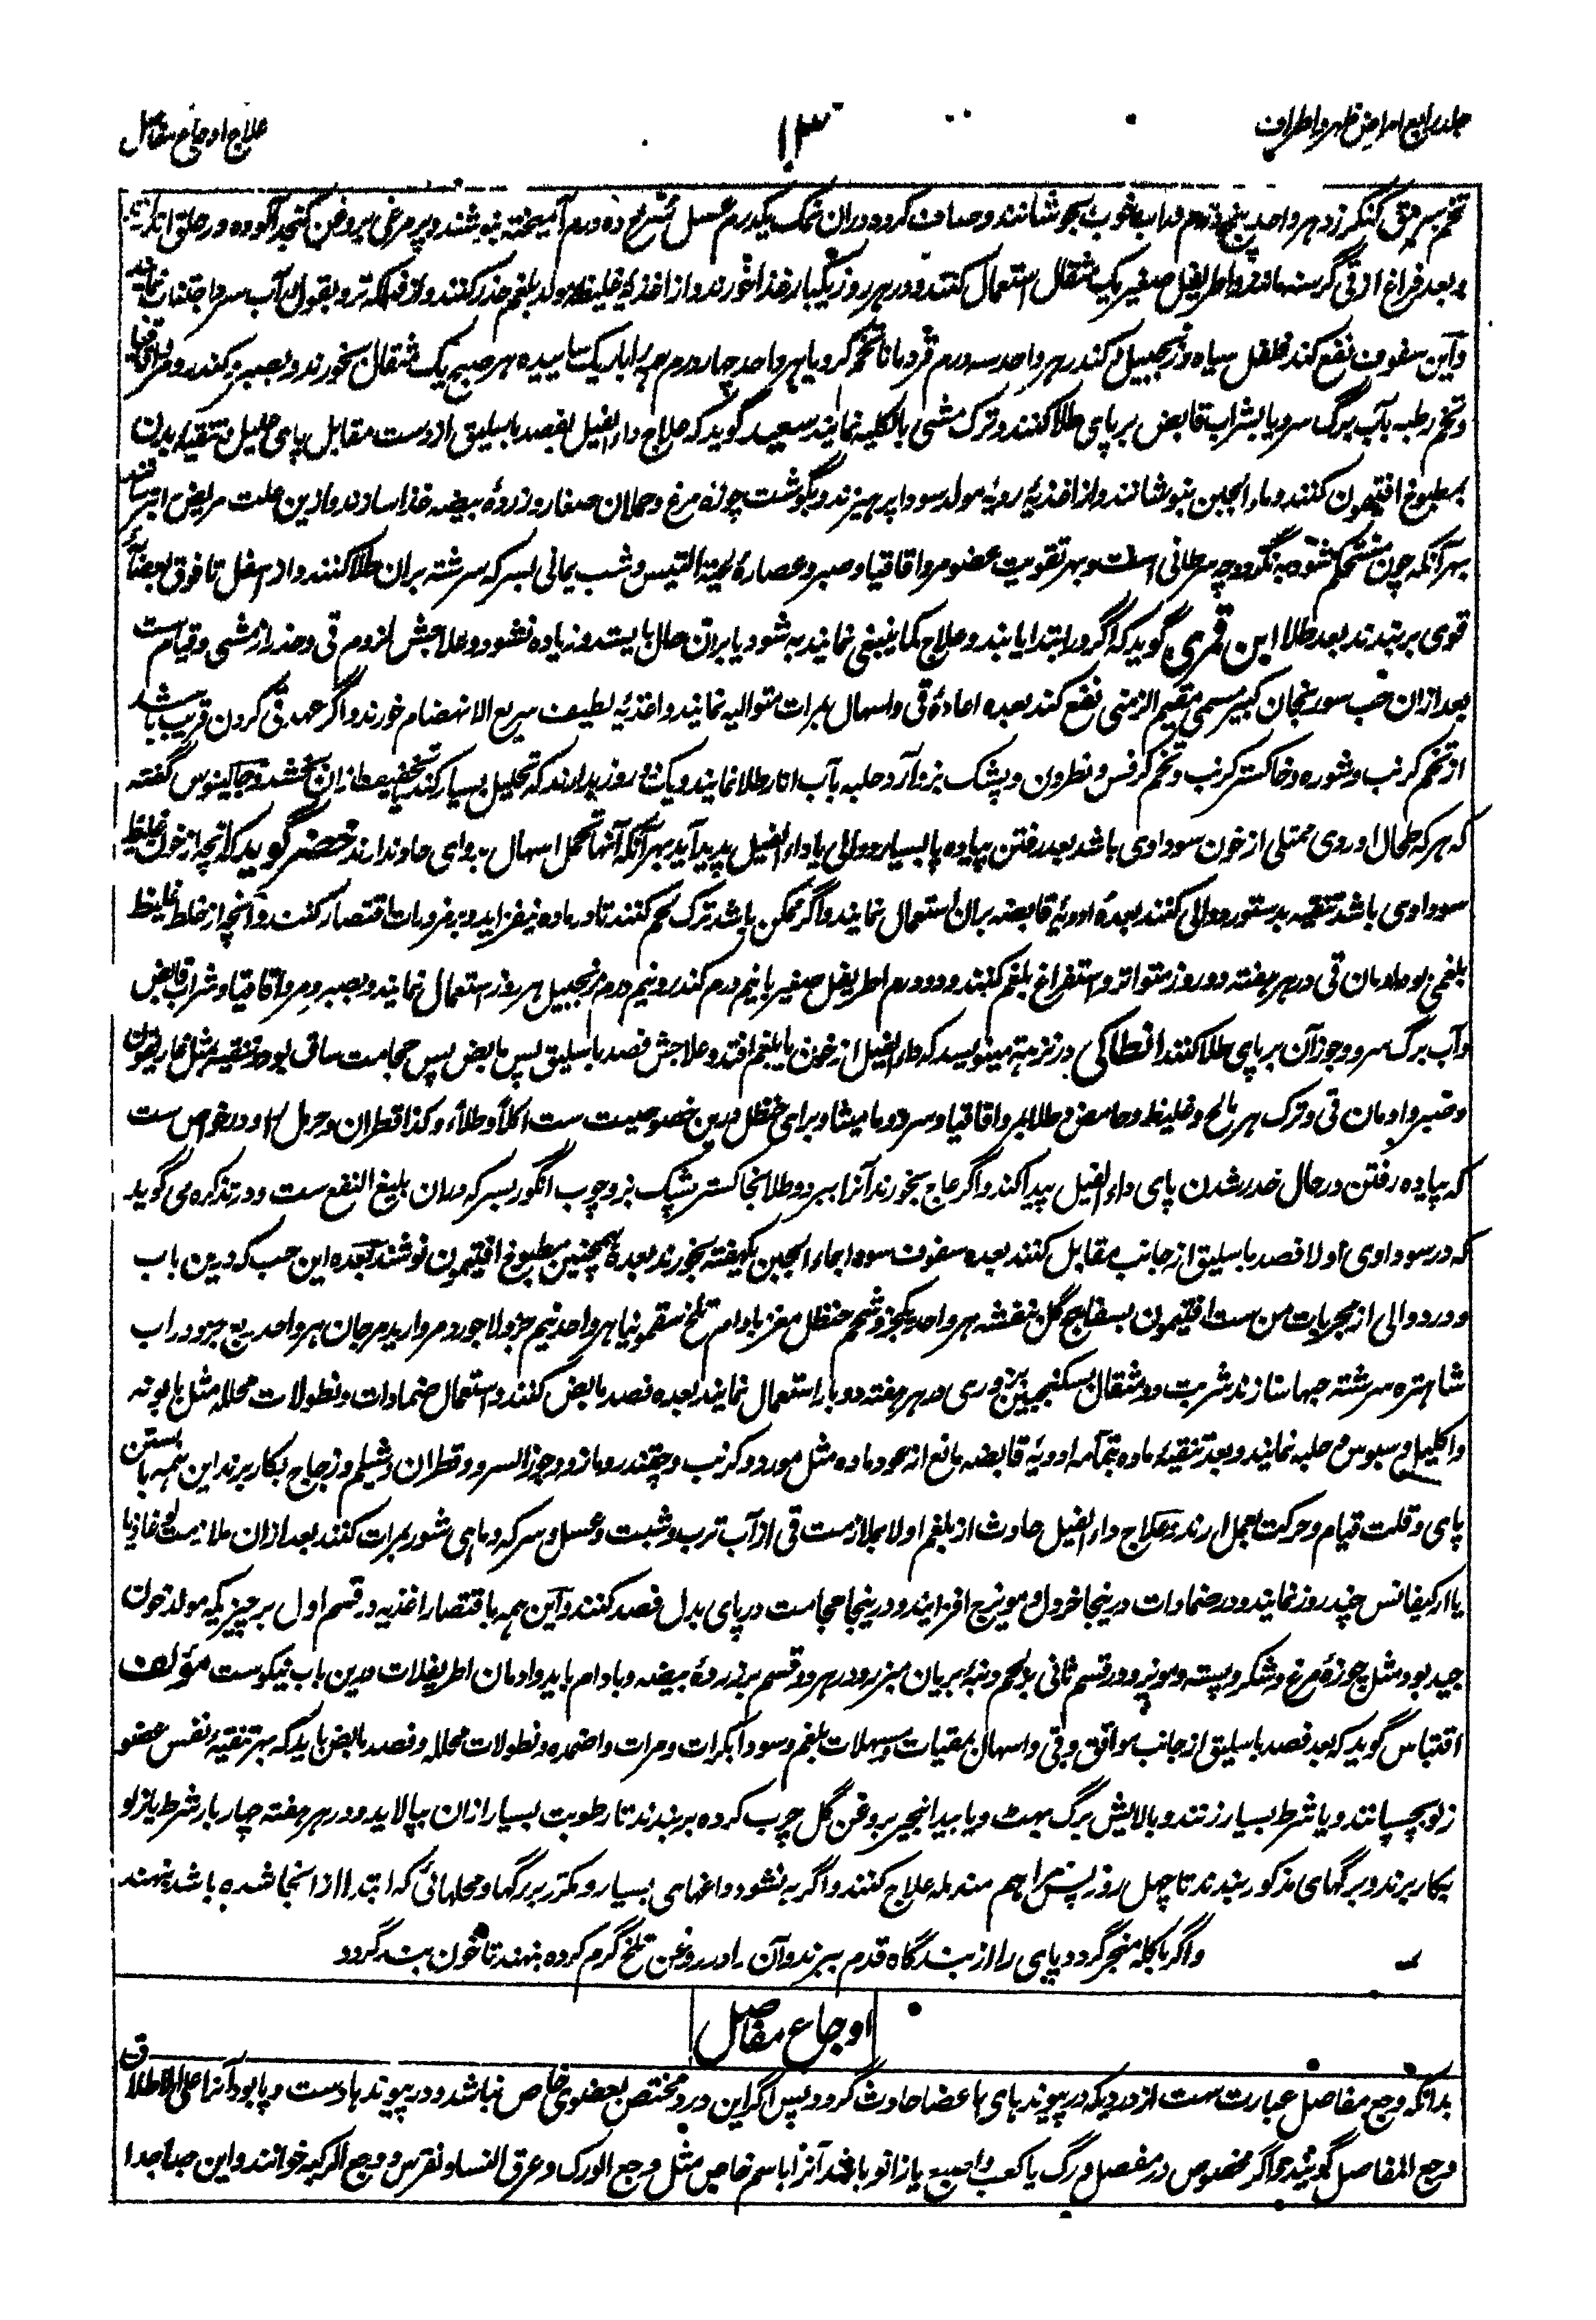 جلد رابع امراض ظهر و اطراف
۱۳
علاج اوجاع مفاصل
تخم سرمق کنکرزد هر واحد پنجدرم در آب خوب بجوشانند و صاف کرده دران نمک یکدرم عسل ده درم آمیخته بنوشند و پر مرغی بروغن کنجد آلوده در حلق
و بعد فراغ از قی گرسنه مانند و اطریفل صغیر یک مثقال استعمال کنند و در هر روز یکبار غذا خورند و از اغذیه غلیظه مولد بلغم حذر کنند و از فواکه تر و بقول و آب سرد اجتناب نمایند
و این سفوف نفع کند فلفل سیاه زنجبیل کندر هر واحد سه درم قردمانا تخم کرویا هر واحد چهار درم همه را باریک ساییده هر صبح یک مثقال بخورند و بصبر و کندر و مر و اقاقیا
و تخم رطبه بآب برگ سرو یا بشراب قابض بر پای طلا کنند و ترک مشی بالکلیه نمایند سعید گوید که علاج داءالفیل بفصد باسلیق از دست مقابل پای علیل و تنقیه بدن
بمطبوخ افتیمون کنند و ماءالجبن بنوشانند و از اغذیه ردیه مولد سودا بپرهیزند و بگوشت چوزه مرغ و حملان صغار و زرده بیضه غذا سازند و ازین علت مریض را
بهر آنکه چون مستحکم شود به نگردد چه سرطانی است و بهر تقویت عضو مر و اقاقیا و صبر و عصاره لحیة التیس و شب یمانی بسرکه سرشته بران طلا کنند و از اسفل تا فوق بعصابه
قوی بر بندند بعد طلا ابن قمری گوید که اگر در ابتدا یابند و علاج کما ینبغی نمایند به شود یا بران حال بایستد و زیاده نشود و علاجش لزوم قی و حذر از مشی و قیام ست
بعد ازان حب سورنجان کبیر مسمی مقیم الزمنی نفع کند بعده اعاده قی و اسهال بمرات متوالیه نمایند و اغذیه لطیف سریع الانهضام خورند و اگر عهد قی کردن قریب باشد
از تخم کرنب و شوره و خاکستر کرنب و تخم کرفس و نطرون و پشک بز و آرد حلبه بآب انار طلا نمایند و یکشبانه روز بدارند که تحلیل بسیار کند و تخفیف ازان بخشد و جالینوس گفته
که هر که طحال او روی ممتلی از خون سوداوی باشد بعد رفتن پیاده پا بسیار دوالی یا داءالفیل پدید آید بهر آنکه آنها تحمل اسهال بدوای حاد ندارند خضر گوید که آنچه از خون غلیظ
سوداوی باشد تنقیه بدستور دوالی کنند بعده ادویه قابضه بران استعمال نمایند و اگر ممکن باشد ترک لحم کنند تا در ماده نیفزاید و بمزورات اقتصار کنند و آنچه از خلط غلیظ
بلغمی بود ادمان قی در هر هفته دو روز متواتر و استفراغ بلغم کنند و دو درم اطریفل صغیر با نیم درم کندر و نیم درم زنجبیل هر روز استعمال نمایند و بصبر و مر و اقاقیا و شراب قابض
و آب برگ سرو و جوز آن بر پای طلا کنند انطاکی در نزهة مینویسد که داءالفیل از خون یا بلغم افتد و علاجش فصد باسلیق پس مابض پس حجامت ساق بود و تنقیه بمثل غاریقون
و صبر و ادمان قی و ترک هر مالح و غلیظ و حامض و طلا بمر و اقاقیا و سرو و مامیثا و برای حنظل درین خصوصیت ست اکلاً و طلاءً و کذا قطران و حرمل و در خواص ست
که پیاده رفتن در حال خدر شدن پای داءالفیل پیدا کند و اگر عاج بخورند آنرا ببرد و طلا بخاکستر پشک بز و چوب انگور بسرکه دران بلیغ النفع ست و در تذکره می گوید
که در سوداوی اولا فصد باسلیق از جانب مقابل کنند بعده سفوف سودا بماءالجبن یکهفته بخورند بعده همچنین مطبوخ افتیمون نوشند بعده این حب که درین باب
و در دوالی از مجربات من ست افتیمون بسفایج گل بنفشه هر واحد یکجزو شحم حنظل مغز بادام تلخ سقمونیا هر واحد نیم جزو لاجورد مروارید مرجان هر واحد ربع جزو در آب
شاهتره سرشته حبها سازند شربت دو مثقال بسکنجبین بزوری در هر هفته دو بار استعمال نمایند بعده فصد مابض کنند و استعمال ضمادات و نطولات محلله مثل بابونه
و اکلیل و سبوس و حلبه نمایند و بعد تنقیه ماده بتمامه ادویه قابضه مانع از عود ماده مثل مورد و کرنب و چقندر و مازو و جوزالسرو و قطران و شیلم و زجاج بکار برند این همه با بستن
پای و قلت قیام و حرکت بعمل آرند و علاج داءالفیل حادث از بلغم اولا بملازمت قی از آب ترب و شبت و عسل و سرکه و ماهی شور بمرات کنند بعد ازان ملازمت لوغاذیا
یا ارکیغانس چند روز نمایند و در ضمادات درینجا خردل و مویزج افزایند و درینجا حجامت در پای بدل فصد کنند و این همه باقتصار اغذیه در قسم اول بر چیزیکه مولد خون
جید بود مثل چوزه مرغ و شکر و پسته و مویز و در قسم ثانی بر لحم و نبذ بریان مبزر و در هر دو قسم بر زرده بیضه و بادام باید و ادمان اطریفلات درین باب نیکوست مؤلف
اقتباس گوید که بعد فصد باسلیق از جانب موافق وقی و اسهال بمقیات و مسهلات بلغم و سودا بکرات و مرات و اضمده و نطولات محلله و فصد مابض باید که بهر تنقیه نفس عضو
زلو بچسپانند و یا شرط بسیار زنند و بالایش برگ بهٹ و یا بیدانجیر بروغن گل چرب کرده بر بندند تا رطوبت بسیار ازان بپالاید و در هر هفته چار بار شرط یا زلو
بکار برند و برگهای مذکور بندند تا چهل روز پس مراهم مندمله علاج کنند و اگر به نشود داغهای بسیار و مکرر بر رگها و محلهائی که ابتدا از انجا شده باشد بنهند
و اگر باکله منجر گردد پای را از بندگاه قدم ببرند و آن را در روغن تلخ گرم کرده بنهند تا خون بند گردد
اوجاع مفاصل
بدانکه وجع مفاصل عبارت ست از دردیکه در پیوندهای اعضا حادث گردد پس اگر این درد مختص بعضوی خاص نباشد و در پیوندها دست و پا بود آنرا علی الاطلاق
وجع المفاصل گویند و اگر مخصوص در مفصل ورک یا کعب و اصبع یا زانو باشد آنرا باسم خاص مثل وجع الورک و عرق النسا و نقرس و وجع الرکبه خوانند و این جداجدا